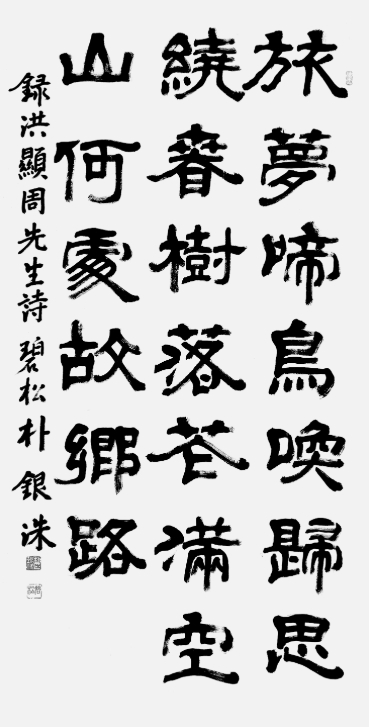 旅夢啼鳥喚歸思
繞春樹落花滿空
山何處故鄉路
録洪顯周先生詩 碧松朴銀洙